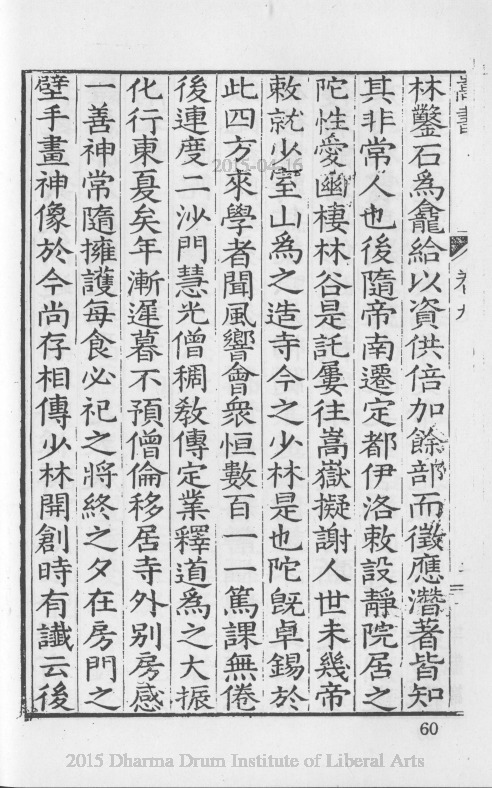 嵩書
卷九
林鑿石爲龕給以資供倍加餘部而徵應潛著皆知
其非常人也後隨帝南遷定都伊洛敕設靜院居之
陀性愛幽棲林谷是託屢往嵩嶽擬謝人世未幾帝
敕就少室山爲之造寺今之少林是也陀旣卓錫於
此四方來學者聞風響會衆恒數百一一篤課無倦
後連度二沙門慧光僧稠敎傳定業釋道爲之大振
化行東夏矣年漸遲暮不預僧倫移居寺外别房感
一善神常隨擁護每食必祀之將終之夕在房門之
壁手畫神像於今尚存相傳少林開創時有讖云後
2015-04-16
60
2015 Dharma Drum Institute of Liberal Arts